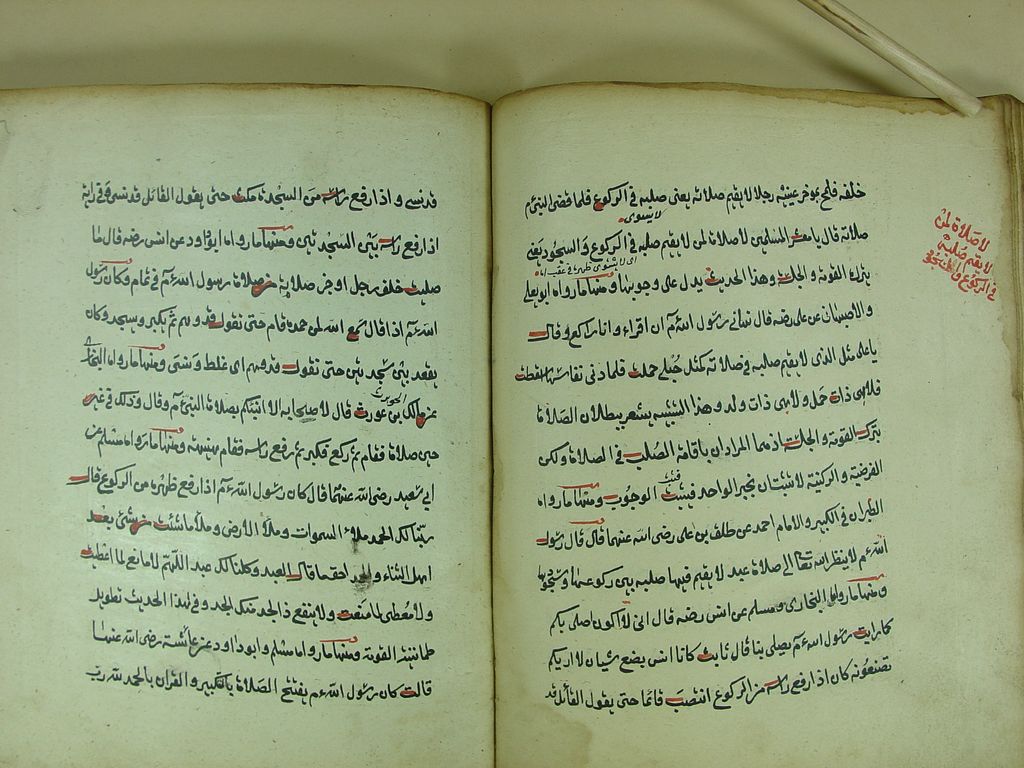 خلفه فلمح بمؤخر عينيه رجلا لا يقيم صلاته يعنى صلبه فى الركوع فلما قضى النبى عم
لا يسوى
صلاته قال يا معشر المسلمين لا صلاة لمن لا يقيم صلبه فى الركوع والسجود يعنى
اى لا يستوى ظهره فى عقب
بترك القومة والجلسة وهذا الحديث يدل على وجوبها ومنها ما رواه ابو يعلى
والاصبهانى عن على رضه قال نهانى رسول الله عم ان اقراء وانا راكع وقال
يا على مثل الذى لا يقيم صلبه فى صلاته كمثل حبلى حملت فلما دنى نفاسها اسقطت
فلا هى ذات حمل ولا هى ذات ولد وهذا التشبيه يشعر ببطلان الصلاة
بترك القومة والجلسة اذ هما المراد ان باقامة الصلب فى الصلاة ولكن
الفرضية والركنية لا تثبتان بخبر الواحد فيثبت الوجوب ومنها ما رواه
الطبرانى فى الكبير والامام احمد عن طلق بن على رضى الله عنهما قال قال رسول
الله عم لا ينظر الله تعالى الى صلاة عبد لا يقيم فيها صلبه بين ركوعها وسجودها
ومنها ما رواه البخارى ومسلم عن انس رضه قال انى لا اكون اصلى بكم
كما رايت رسول الله عم يصلى بنا قال ثابت كان انس يصنع شيئا لا اريكم
تصنعونه كان اذا رفع راسه من الركوع انتصب قائما حتى يقول القائل قد
لا صلاة لمن
لا يقيم صلبه
فى الركوع والسجود
قد نسى واذا رفع راسه من السجدة مكث حتى يقول القائل قد نسى وفى رواية
اذا رفع راسه بين السجدتين ومنها ما رواه ابو داود عن انس رضه قال ما
صليت خلف رجل اوجز صلاة من صلاة رسول الله عم فى تمام وكان رسول
الله عم اذا قال سمع الله لمن حمده قام حتى نقول قد وهم ثم يكبر ويسجد وكان
يقعد بين سجدتين حتى نقول قد وهم اى غلط ونسى ومنها ما رواه البخارى
الحويرث
عن مالك بن عورث قال لاصحابه الا انبئكم بصلاة النبى عم وقال وذلك فى غير
حين صلاة فقام ثم ركع فكبر ثم رفع راسه فقام هنيهة ومنها ما رواه مسلم عن
ابى سعيد رضى الله عنهما قال كان رسول الله عم اذا رفع ظهره من الركوع قال
ربنا لك الحمد ملاء السموات وملأ الارض وملأ ما شئت من شئ بعد
اهل الثناء والمجد احق ما قال العبد وكلنا لك عبد اللهم لا مانع لما اعطيت
ولا معطى لما منعت ولا ينفع ذا الجد منك الجد وفى هذا الحديث تطويل
طمانينة القومة ومنها ما رواه مسلم وابو داود عن عائشة رضى الله عنها
قالت كان رسول الله عم يفتتح الصلاة بالتكبير والقران بالحمد لله رب